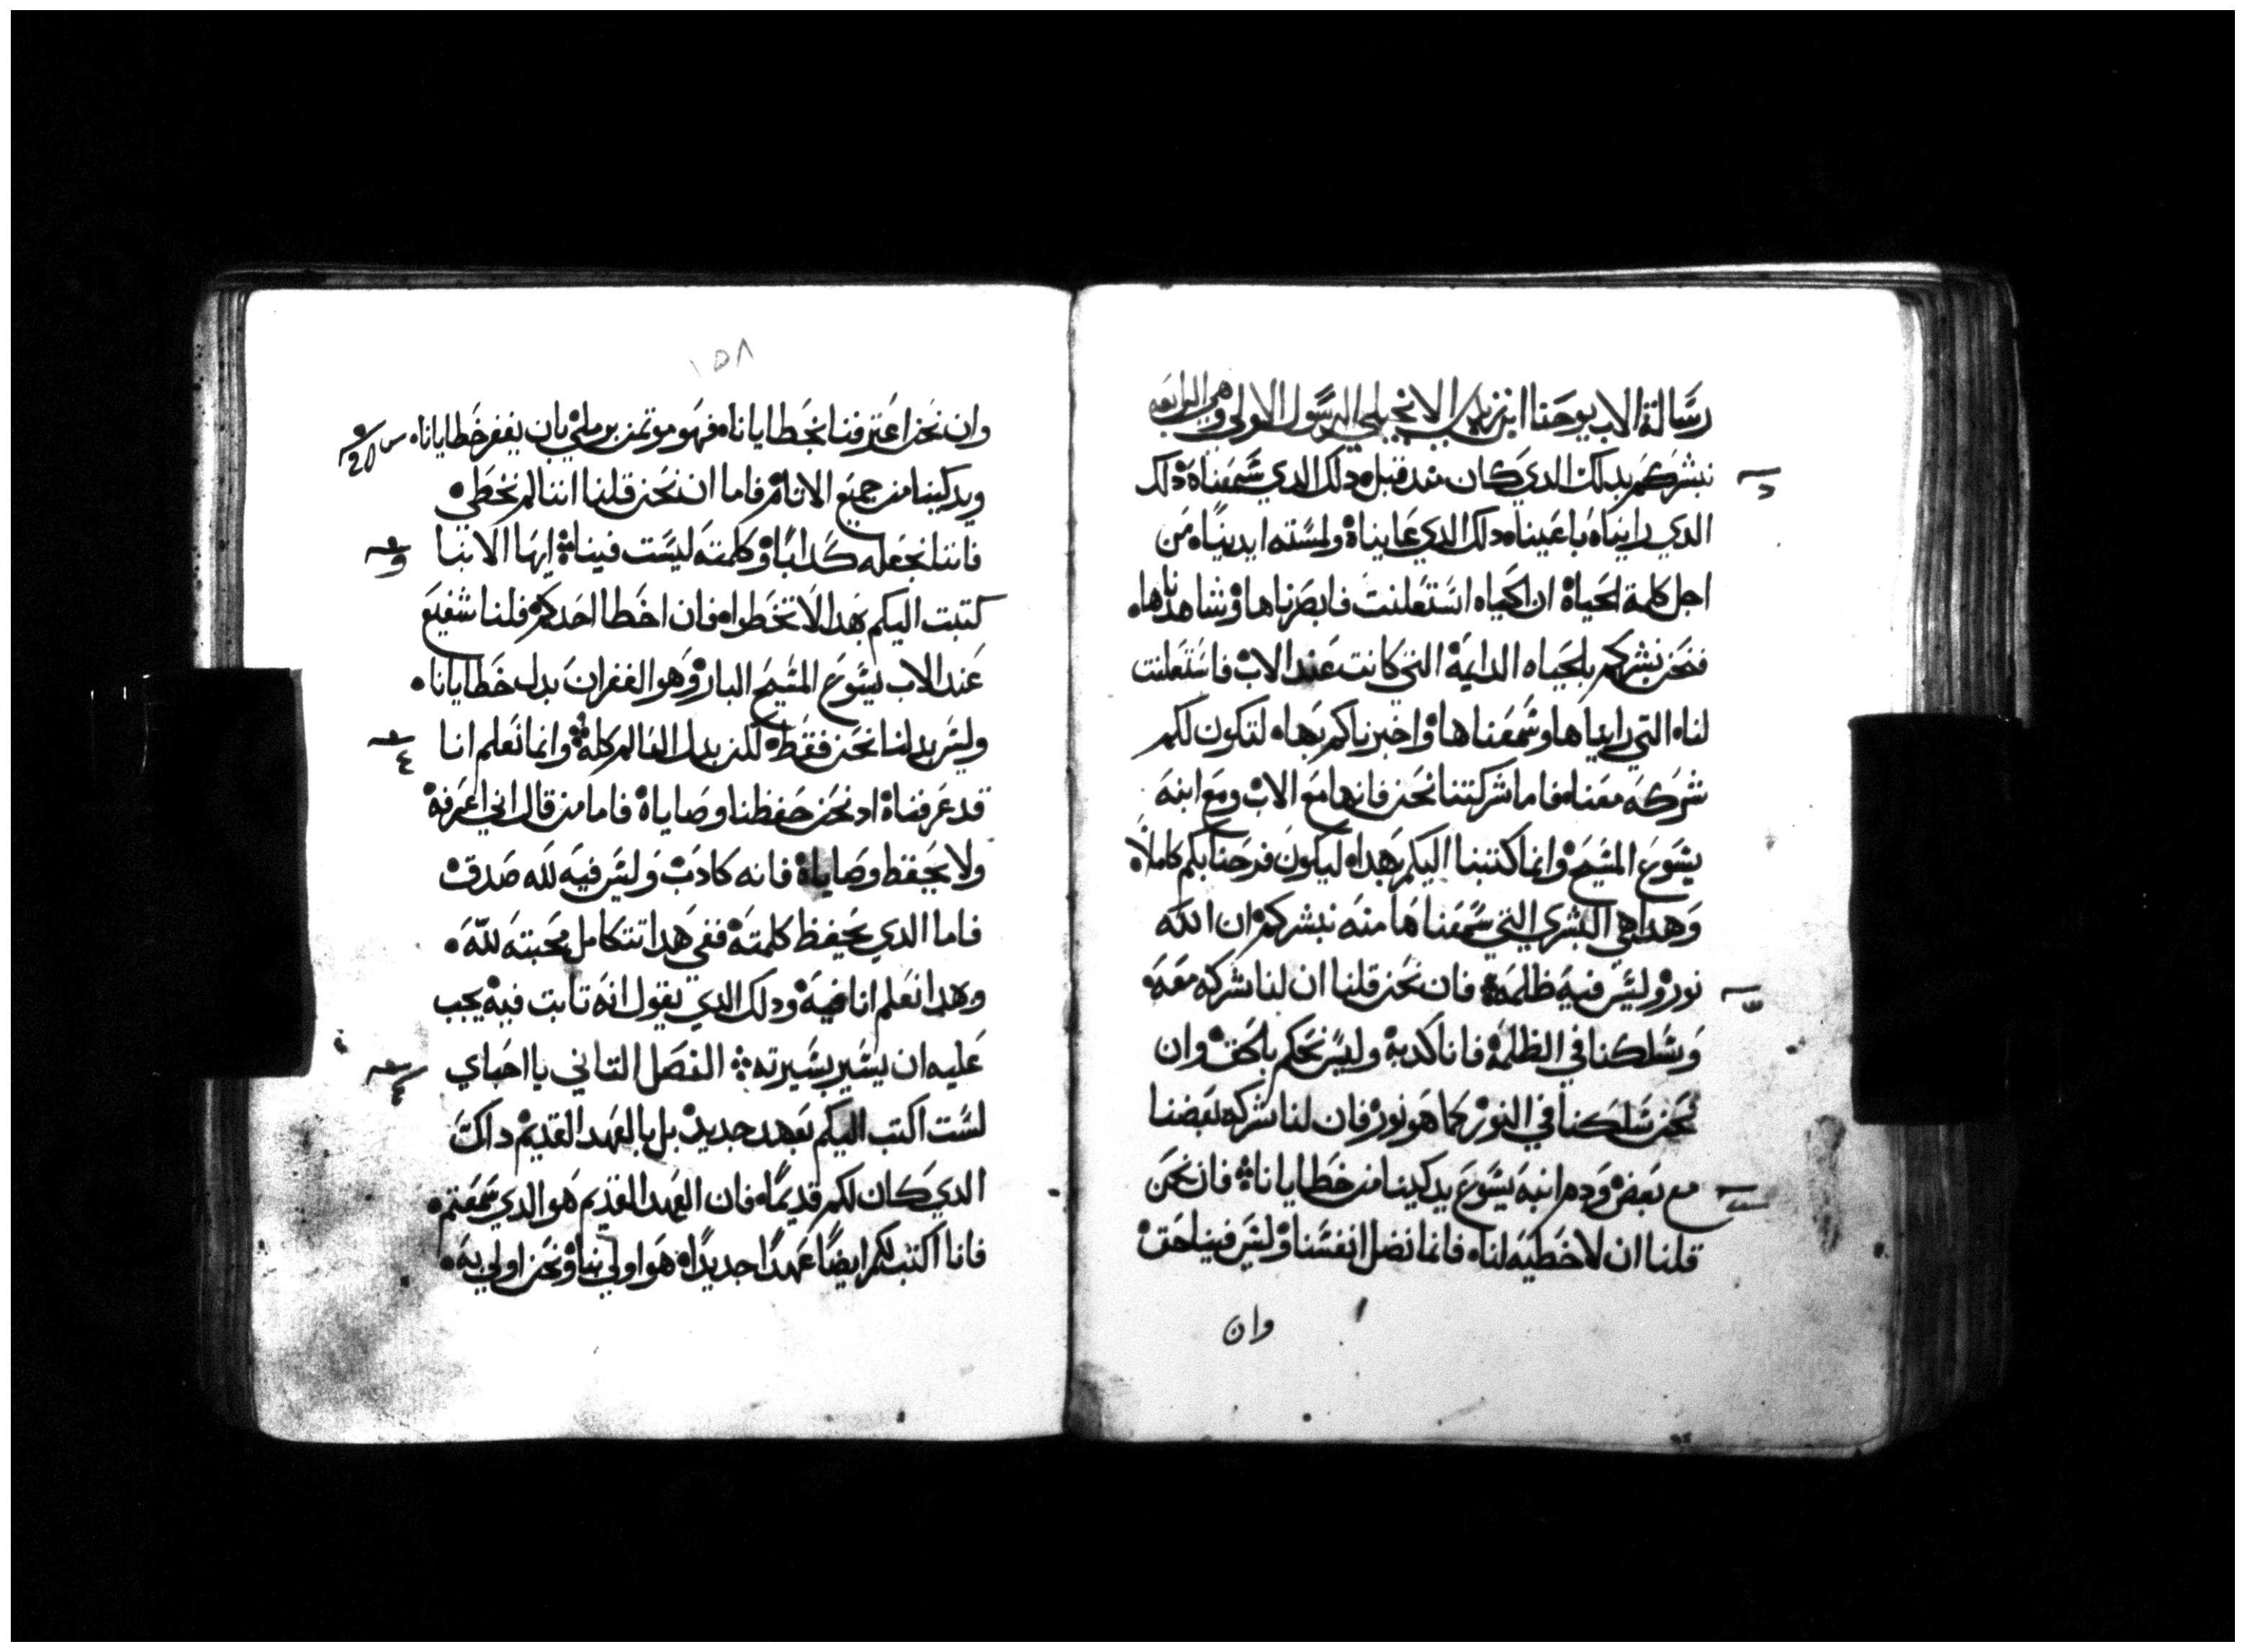 رسالة الاب يوحنا ابن زبدي الانجيلي الرسول الاولي وهي الرابعه
نبشركم بدلك الدي كان مند قبل ه دلك الدي سمعناه ه دلك
الدي رايناه باعيناه دلك الدي عايناه ولمسته ايديناه من
اجل كلمة الحياة ان الحياه استعلنت فابصرناها وشاهدناها ه
فنحن نبشركم بالحياه الدايمة التي كانت عند الاب فاستعلنت
لناه التي رايناها وسمعناها واخبرناكم بهاه لتكون لكم
شركه معناه فاما شركتنا نحن فانها مع الاب ومع ابنه
يسوع المسيح وانما كتبنا اليكم بهداه ليكون فرحنا بكم كاملاً
وهدا هي البشري التي سمعناها منه نبشركم ان الله
نور وليس فيه ظلمه فان نحن قلنا ان لنا شركه معه
وسلكنا في الظلمة فانا كدبة وليس نحكم بالحق وان
نحن سلكنا في النور كما هو نور فان لنا شركه بعضنا
مع بعض ودم ابنه يسوع يدكينا من خطايانا فان نحن
قلنا ان لا خطيه لناه فانما نضل انفسنا وليس فينا حق
وان
١٥٨
وان نحن اعترفنا بخطاياناه فهو موتمن بر ملي بان يغفر خطاياناه
ويدكينا من جميع الاثام فاما ان نحن قلنا اننا لم نخطي ه
فاننا نجعله كداباً وكلمته ليست فينا ايها الابنا
كتبت اليكم بهدا لا تخطواه فان اخطا احدكم فلنا شفيع
عند الاب يسوع المسيح البار وهو الغفران بدل خطاياناه
وليس بدلنا نحن فقط لكن بدل العالم كله وانما نعلم انا
قد عرفناه اد نحن حفظنا وصاياه فاما من قال اني اعرفه
ولا يحفظ وصاياه فانه كادب وليس فيه لله صدق
فاما الدي يحفظ كلمته ففي هدا تتكامل محبته لله ه
وهدا نعلم انا فيه ودلك الدي يقول انه تابت فيه يجب
عليه ان يسير بسيرته الفصل التاني يا احباي
لست اكتب اليكم بعهد جديد بل بالعهد القديم داك
الدي كان لكم قديماه فان العهد القديم هو الدي سمعتم ه
فانا اكتب لكم ايضاً عهداً جديداً هو اولي بنا ونحن اولي به ه